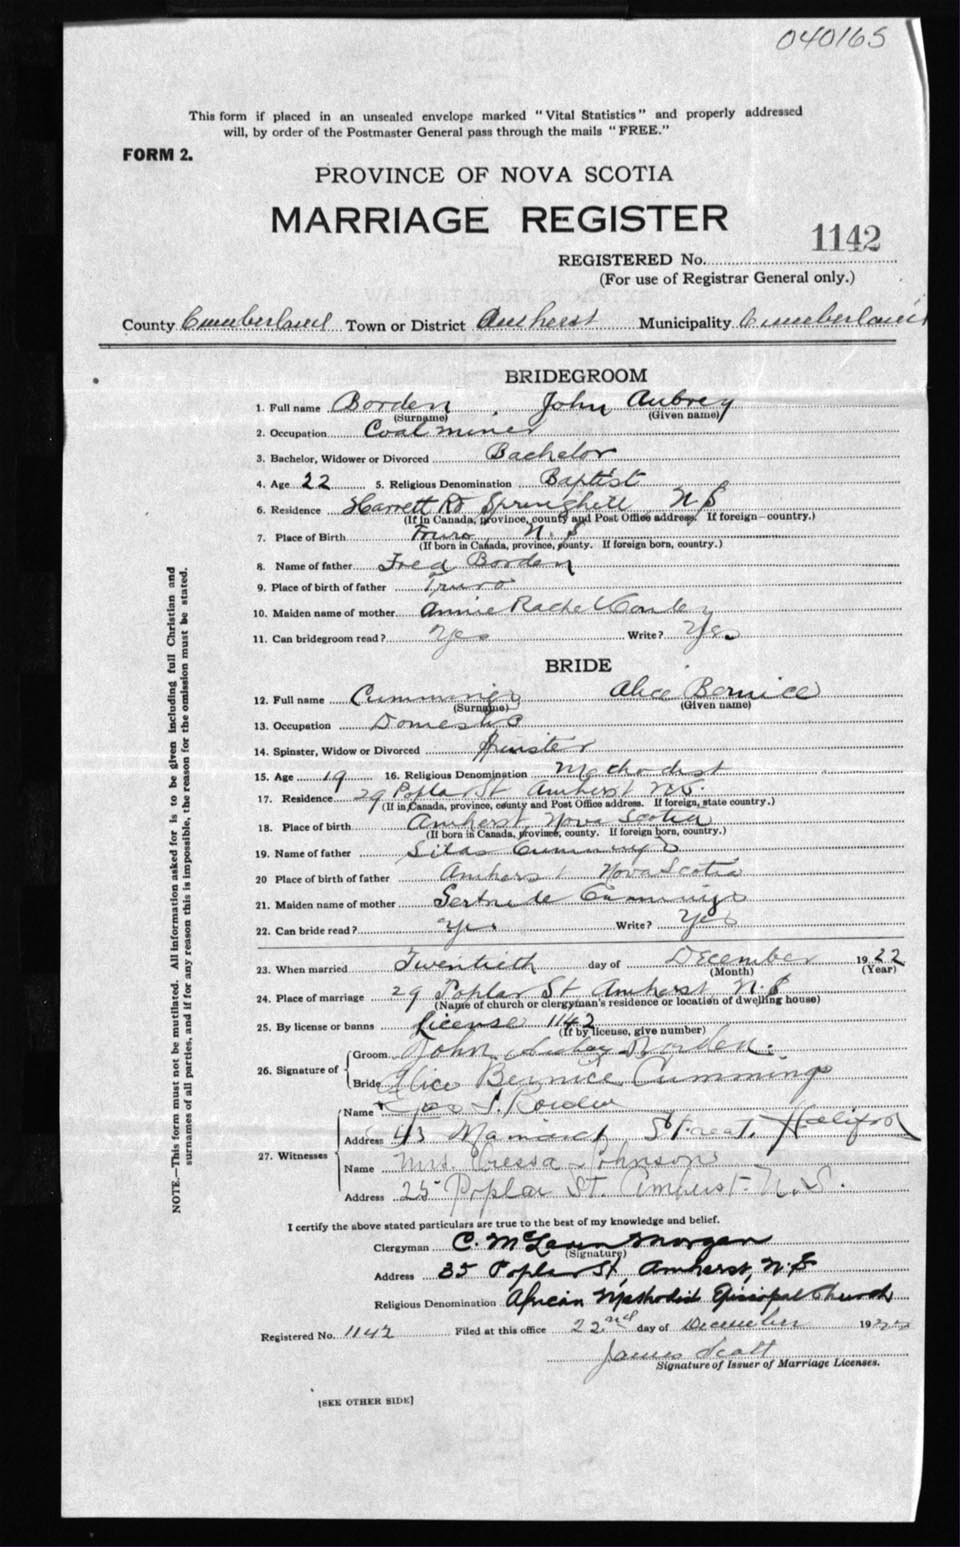 040165
This form if placed in an unsealed envelope marked "Vital Statistics" and properly addressed
will, by order of the Postmaster General pass through the mails "FREE."
FORM 2.
PROVINCE OF NOVA SCOTIA
MARRIAGE REGISTER
1142
REGISTERED No.
(For use of Registrar General only.)
County Cumberland Town or District Amherst Municipality Cumberland
BRIDEGROOM
1. Full name Borden John Aubrey
(Surname) (Given name)
2. Occupation Coal miner
3. Bachelor, Widower or Divorced Bachelor
4. Age 22 5. Religious Denomination Baptist
6. Residence Harrett Rd Springhill N S
(If in Canada, province, county and Post Office address. If foreign—country.)
7. Place of Birth Truro N. S
(If born in Canada, province, county. If foreign born, country.)
8. Name of father Fred Borden
9. Place of birth of father Truro
10. Maiden name of mother Annie Rachel
11. Can bridegroom read? Yes Write? Yes
BRIDE
12. Full name Cummings Alice Bernice
(Surname) (Given name)
13. Occupation Domestic
14. Spinster, Widow or Divorced Spinster
15. Age 19 16. Religious Denomination Methodist
17. Residence 29 Poplar St Amherst N.S.
(If in Canada, province, county and Post Office address. If foreign, state country.)
18. Place of birth Amherst Nova Scotia
(If born in Canada, province, county. If foreign born, country.)
19. Name of father Silas Cummings
20 Place of birth of father Amherst Nova Scotia
21. Maiden name of mother Gertrude Cummings
22. Can bride read? Yes Write? Yes
23. When married Twentieth day of December 1922
(Month) (Year)
24. Place of marriage 29 Poplar St Amherst N.S
(Name of church or clergyman's residence or location of dwelling house)
25. By license or banns License 1142
(If by license, give number)
26. Signature of Groom John Aubrey Borden.
Bride Alice Bernice Cummings
27. Witnesses
Name Borden
Address 43 Street, Halifax
Name Mrs. Cressa Johnson
Address 25 Poplar St. Amherst. N.S.
I certify the above stated particulars are true to the best of my knowledge and belief.
Clergyman C. McLaren Morgan
(Signature)
Address 35 Poplar St, Amherst, N.S
Religious Denomination African Methodist Episcopal Church
Registered No. 1142 Filed at this office 22nd day of December 1922
James Scott
Signature of Issuer of Marriage Licenses.
[SEE OTHER SIDE]
NOTE.—This form must not be mutilated. All information asked for is to be given including full Christian and
surnames of all parties, and if for any reason this is impossible, the reason for the omission must be stated.